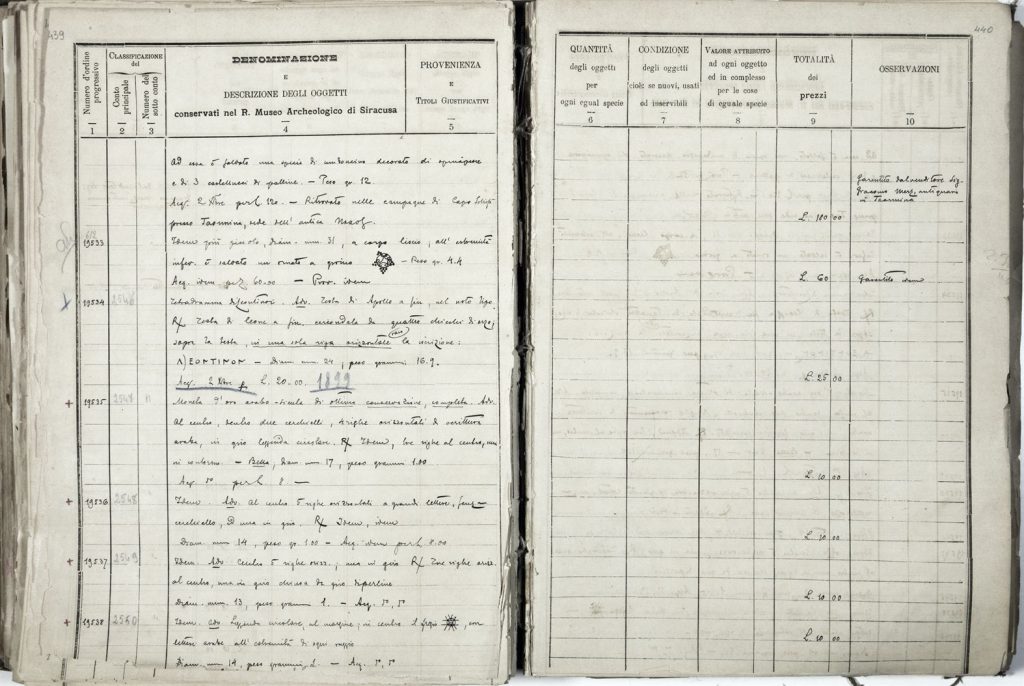 439
Numero d'ordine progressivo
Classificazione del
Conto principale
Numero del sotto conto
DENOMINAZIONE
E
DESCRIZIONE DEGLI OGGETTI
conservati nel R. Museo Archeologico di Siracusa
PROVENIENZA
E
Titoli Giustificativi
1 2 3 4 5
Ad essa è saldato una specie di decorato di
e di 3 di palline. – Peso gr. 12.
Acq. 2 Xbre per L. 120. – Ritrovato nelle campagne di Capo
presso Taormina, sede dell' antica
19533
Idem più piccolo, diam. mm. 31, a corpo liscio; all' estremità
infer. è saldato un ornato a – Peso gr. 4.4
Acq. idem per 60.00 – Prov. idem
19534 2546 Tetradramma di Leontinoi. Adv. Testa di Apollo a sin., nel noto tipo
R/ Testa di leone a sin., circondata da quattro chicchi di orzo;
sopra la testa, in una sola riga orizzontale la iscrizione:
ΛEONTINON – Diam. mm. 24, peso grammi 16.9.
Acq. 2 Xbre p. L. 20.00. 1899
+ 19535 2547 Moneta d'oro arabo-sicula di ottima conservazione, completa. Adv.
Al centro, dentro due cerchielli, 4 righe orizzontali di scrittura
araba, in giro leggenda circolare. R/ Idem, tre righe al centro, una
in contorno. – Bella, diam. mm 17, peso grammi 1.00
Acq. per L. 8 –
+ 19536 2548 Idem. Adv. Al centro 5 righe orizzontali a grandi lettere, senza
cerchiello, ed una in giro. R/ Idem, idem
Diam. mm 14, peso gr. 1.00 – Acq. idem per L. 8.00
+ 19537 2549 Idem. Adv. Centro 5 righe orizz.; una in giro R/ Tre righe orizz.
al centro, una in giro chiusa da giro di perline
Diam. mm. 13, peso grammi 1. – Acq.
+ 19538 2550 Idem. Adv. Leggenda circolare, al margine; in centro il fregio con
lettere arabe all' estremità di ogni raggio
Diam. mm 14, peso grammi 1. – Acq.
440
QUANTITÀ
degli oggetti
per
ogni egual specie
CONDIZIONE
degli oggetti
cioè: se nuovi, usati
od inservibili
Valore attribuito
ad ogni oggetto
ed in complesso
per le cose
di eguale specie
TOTALITÀ
dei
prezzi
OSSERVAZIONI
6 7 8 9 10
Garentito dal venditore Sig.
Giacomo antiquario
a Taormina
L. 180 00
L. 60 Garentito idem
L. 25 00
L. 10 00
L. 10 00
L. 10 00
L. 10 00